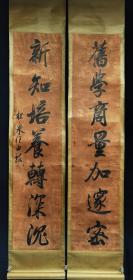 舊學商量加邃密
新知培養轉深沉